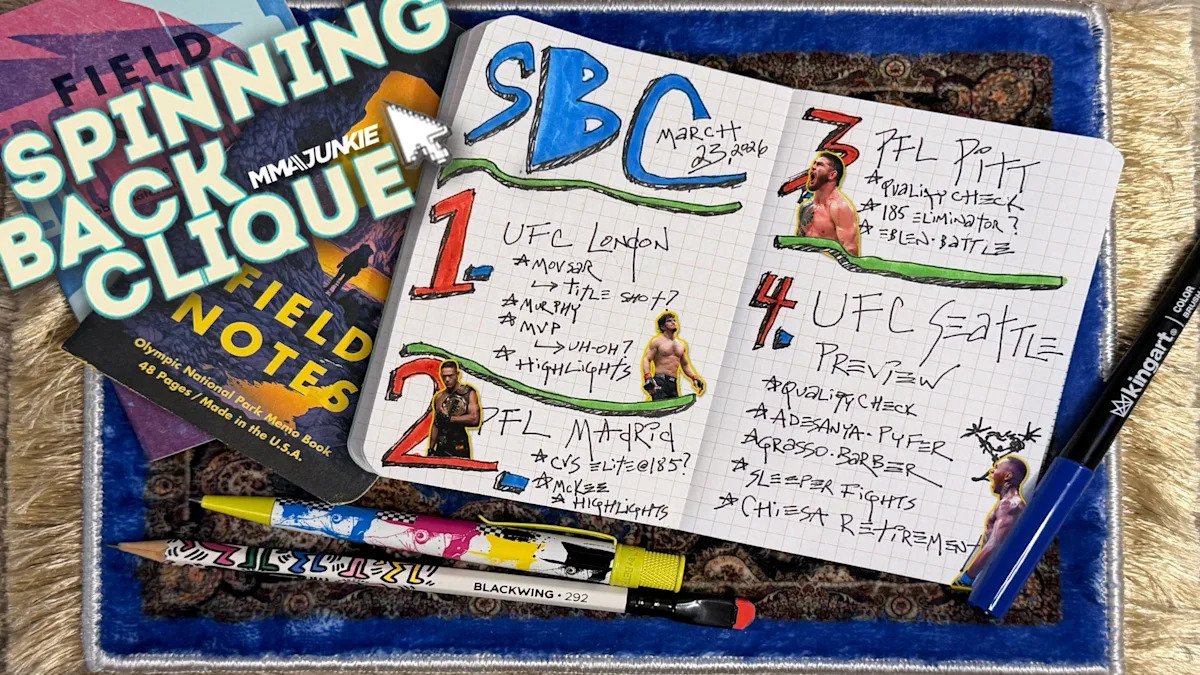 FIELD
SPINNING
BACK
CLIQUE
MMAJUNKIE
FIELD
NOTES
Olympic National Park Memo Book
48 Pages / Made in the U.S.A.
SBC
MARCH
23, 2026
1.
UFC LONDON
MOVSAR
TITLE SHOT?
MURPHY
MVP
UH-OH?
HIGHLIGHTS
2.
PFL MADRID
CVS ELITE@185?
MCKEE
HIGHLIGHTS
3
PFL PITT
QUALITY CHECK
185 ELIMINATOR?
EBLEN-BATTLE
4.
UFC SEATTLE
PREVIEW
QUALITY CHECK
ADESANYA-PYFER
GRASSO-BARBER
SLEEPER FIGHTS
CHIESA RETIREMENT
BLACKWING • 292
kingart®
COLOR